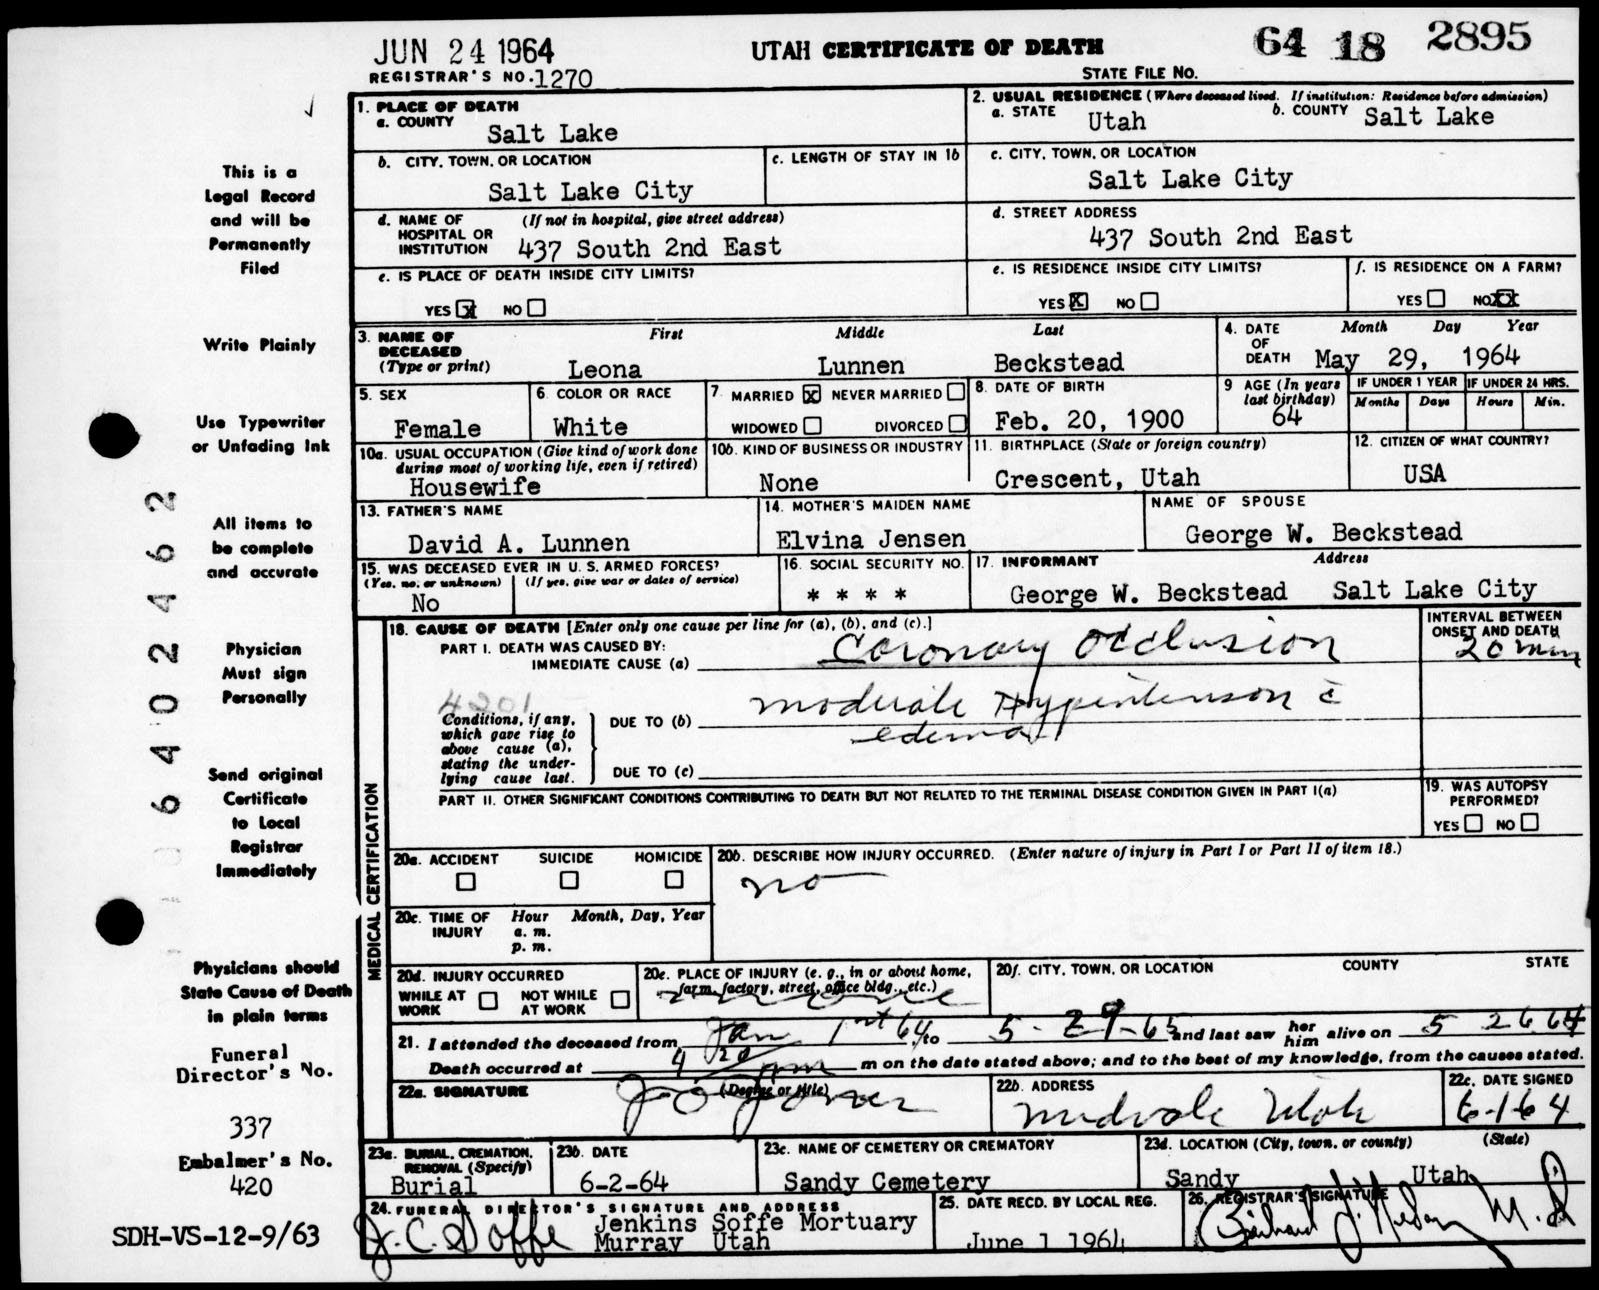 JUN 24 1964
UTAH CERTIFICATE OF DEATH
64 18 2895
REGISTRAR'S NO. 1270
STATE FILE NO.
This is a
Legal Record
and will be
Permanently
Filed
Write Plainly
Use Typewriter
or Unfading Ink
All items to
be complete
and accurate
Physician
Must sign
Personally
Send original
Certificate
to Local
Registrar
Immediately
Physicians should
State Cause of Death
in plain terms
Funeral
Director's No.
337
Embalmer's No.
420
SDH-VS-12-9/63
6402462
1. PLACE OF DEATH
a. COUNTY
Salt Lake
2. USUAL RESIDENCE (Where deceased lived. If institution: Residence before admission)
a. STATE Utah b. COUNTY Salt Lake
b. CITY, TOWN, OR LOCATION
Salt Lake City
c. LENGTH OF STAY IN 1b
c. CITY, TOWN, OR LOCATION
Salt Lake City
d. NAME OF HOSPITAL OR INSTITUTION (If not in hospital, give street address)
437 South 2nd East
d. STREET ADDRESS
437 South 2nd East
e. IS PLACE OF DEATH INSIDE CITY LIMITS?
YES X NO
e. IS RESIDENCE INSIDE CITY LIMITS?
YES X NO
f. IS RESIDENCE ON A FARM?
YES NO XX
3. NAME OF DECEASED (Type or print)
First Middle Last
Leona Lunnen Beckstead
4. DATE OF DEATH Month Day Year
May 29, 1964
5. SEX
Female
6. COLOR OR RACE
White
7. MARRIED X NEVER MARRIED
WIDOWED DIVORCED
8. DATE OF BIRTH
Feb. 20, 1900
9 AGE (In years last birthday)
64
IF UNDER 1 YEAR IF UNDER 24 HRS.
Months Days Hours Min.
10a. USUAL OCCUPATION (Give kind of work done during most of working life, even if retired)
Housewife
10b. KIND OF BUSINESS OR INDUSTRY
None
11. BIRTHPLACE (State or foreign country)
Crescent, Utah
12. CITIZEN OF WHAT COUNTRY?
USA
13. FATHER'S NAME
David A. Lunnen
14. MOTHER'S MAIDEN NAME
Elvina Jensen
NAME OF SPOUSE
George W. Beckstead
15. WAS DECEASED EVER IN U. S. ARMED FORCES?
(Yes, no, or unknown) (If yes, give war or dates of service)
No
16. SOCIAL SECURITY NO.
* * * *
17. INFORMANT Address
George W. Beckstead Salt Lake City
MEDICAL CERTIFICATION
18. CAUSE OF DEATH [Enter only one cause per line for (a), (b), and (c).]
PART I. DEATH WAS CAUSED BY:
IMMEDIATE CAUSE (a) Coronary Occlusion
INTERVAL BETWEEN ONSET AND DEATH
20 min
4201
Conditions, if any, which gave rise to above cause (a), stating the underlying cause last.
DUE TO (b) moderate Hypertenson c̄
edema
DUE TO (c)
PART II. OTHER SIGNIFICANT CONDITIONS CONTRIBUTING TO DEATH BUT NOT RELATED TO THE TERMINAL DISEASE CONDITION GIVEN IN PART I(a)
19. WAS AUTOPSY PERFORMED?
YES NO
20a. ACCIDENT SUICIDE HOMICIDE
20b. DESCRIBE HOW INJURY OCCURRED. (Enter nature of injury in Part I or Part II of item 18.)
no
20c. TIME OF INJURY Hour Month, Day, Year
a. m.
p. m.
20d. INJURY OCCURRED
WHILE AT WORK NOT WHILE AT WORK
20e. PLACE OF INJURY (e. g., in or about home, farm, factory, street, office bldg., etc.)
20f. CITY, TOWN, OR LOCATION COUNTY STATE
21. I attended the deceased from Jan 1st 64 to 5-29-65 and last saw her him alive on 5 26 64
Death occurred at 4 20 am m on the date stated above; and to the best of my knowledge, from the causes stated.
22a. SIGNATURE (Degree or title)
J O Jones
22b. ADDRESS
Midvale Utah
22c. DATE SIGNED
6-1-64
23a. BURIAL, CREMATION, REMOVAL (Specify)
Burial
23b. DATE
6-2-64
23c. NAME OF CEMETERY OR CREMATORY
Sandy Cemetery
23d. LOCATION (City, town, or county) (State)
Sandy Utah
24. FUNERAL DIRECTOR'S SIGNATURE AND ADDRESS
J. C. Soffe Jenkins Soffe Mortuary
Murray Utah
25. DATE RECD. BY LOCAL REG.
June 1 1964
26. REGISTRAR'S SIGNATURE
M.D.